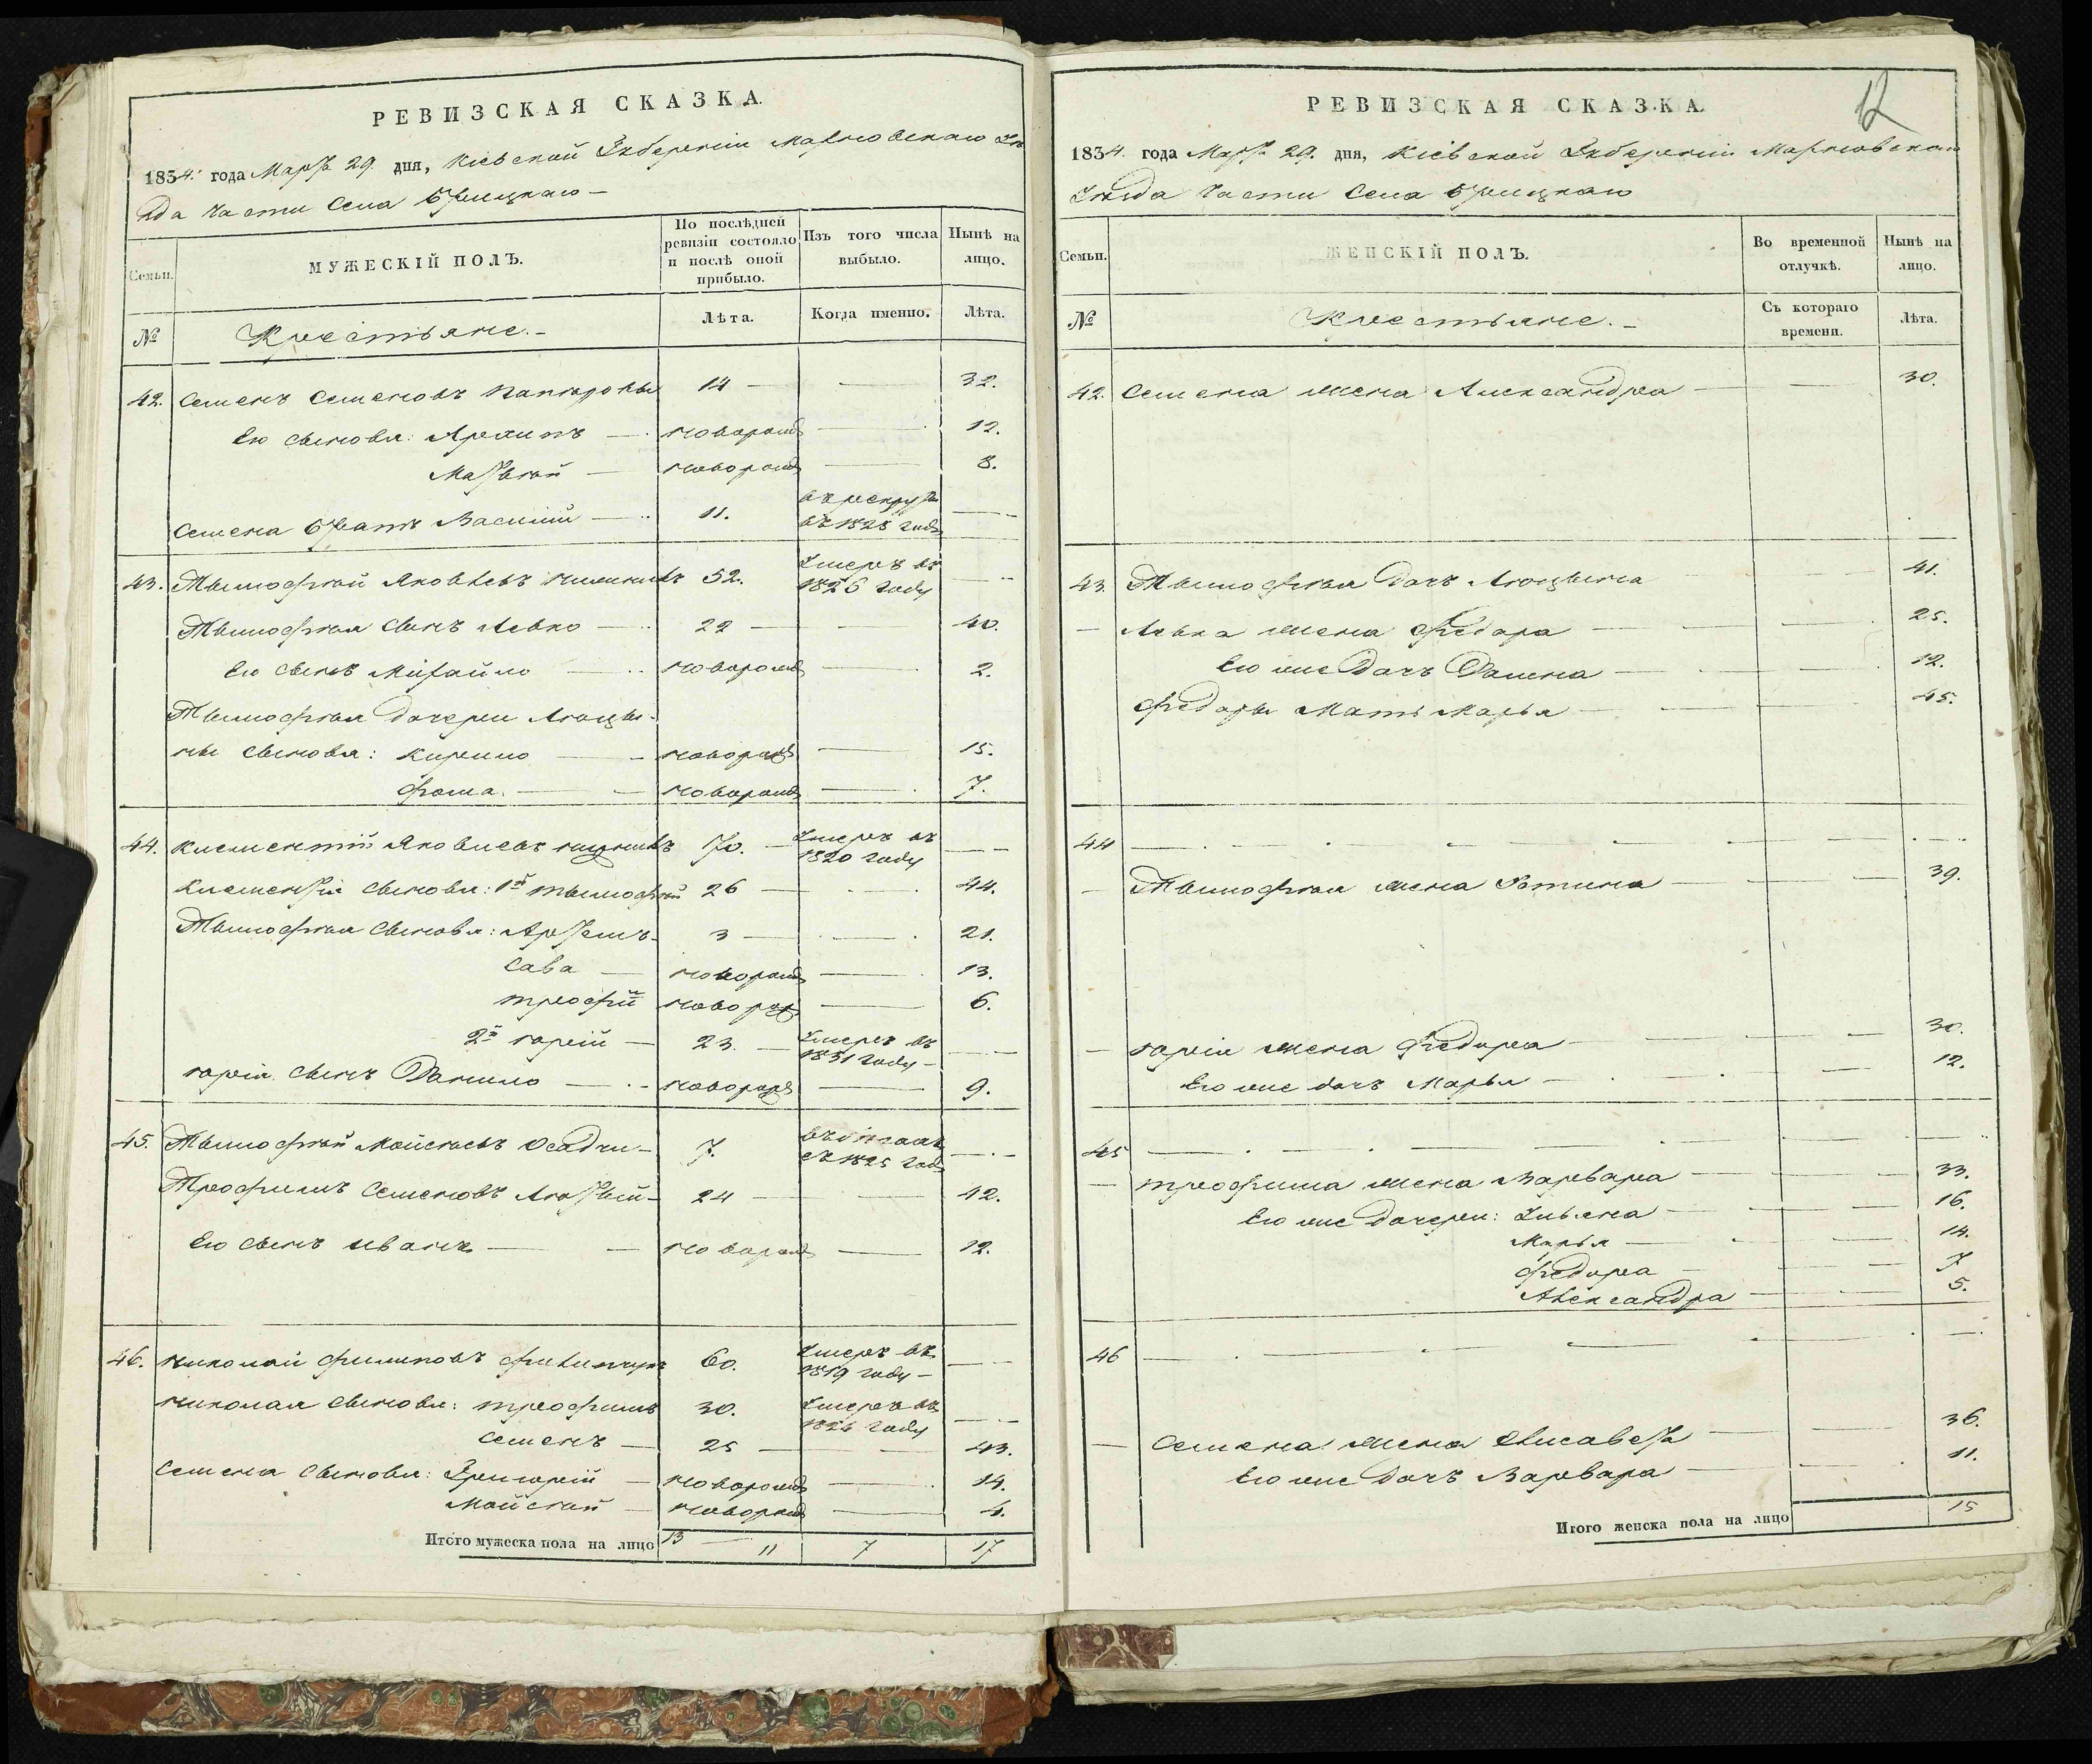 РЕВИЗСКАЯ СКАЗКА.
1834. года Марта 29. дня, Кіевской Губерніи Махновскаго Уѣ
зда части Села Брицкаго
Семьи.
МУЖЕСКІЙ ПОЛЪ.
По послѣдней ревизіи состояло и послѣ оной прибыло.
Изъ того числа выбыло.
Нынѣ на лицо.
№
Крестьяне.
Лѣта.
Когда именно.
Лѣта.
42. Семенъ Семеновъ 14 — — 32.
Его сыновья: Архипъ — новорожд — 12.
Матвѣй — новорожд — 8.
Семена братъ Василій — 11. въ рекруты въ 1828 году —
43. Тымофѣй Яковлевъ 52. Умеръ въ 1826 году —
Тымофѣя сынъ Левко — 22 — — 40.
Его сынъ Михайло — новорожд — 2.
Тымофѣя дочери Люцы-
ны сыновья: Кирило — новорожд — 15.
Фома. — новорожд — 7.
44. Климентій Яковлевъ 70. — Умеръ въ 1820 году —
Климентія сыновья: 1й Тымофѣй 26 — — 44.
Тымофѣя сыновья: Артемъ 3 — — 21.
Сава — новорожд — 13.
Трофим новорож — 6.
2й Юрій — 23. — Умеръ въ 1831 году —
Юрія сынъ Данило — новорожд — 9.
45. Тымофѣй Мойсѣевъ Осадчи- 7. въ бѣгахъ съ 1825 года —
Трофимъ Семеновъ 24 — — 42.
Его сынъ Иванъ — новорожд — 12.
46. Николай Филиповъ 60. Умеръ въ 1819 году —
Николая сыновья: Трофимъ 30. Умеръ въ 1826 году —
Семенъ — 25 — — 43.
Семена сыновья: Григорій — новорожд — 14.
Мойсѣй — новорожд — 4.
Итого мужеска пола на лицо 13 — 11 7 17
12
РЕВИЗСКАЯ СКАЗКА.
1834. года Марта 29. дня, Кіевской Губерніи Махновскаго
Уѣзда части Села Брицкаго
Семьи.
ЖЕНСКІЙ ПОЛЪ.
Во временной отлучкѣ.
Нынѣ на лицо.
№
Крестьяне.
Съ котораго времени.
Лѣта.
42. Семена жена Александра — — 30.
43. Тымофѣя дочь Люцына — — 41.
— Левка жена Федора — — 25.
Его же дочь — — 12.
Федоры мать Марья — — 45.
44 — — —
— Тымофѣя жена — — 39.
— Юрія жена Федора — — 30.
Его же дочь Марья — — 12.
45 — — —
— Трофима жена Варвара — — 33.
Его же дочери: Ульяна — — 16.
Марья — — 14.
Федора — — 7
Александра — — 5.
46 — — —
— Семена жена Елисавета — — 36.
Его же дочь Варвара — — 11.
Итого женска пола на лицо 15